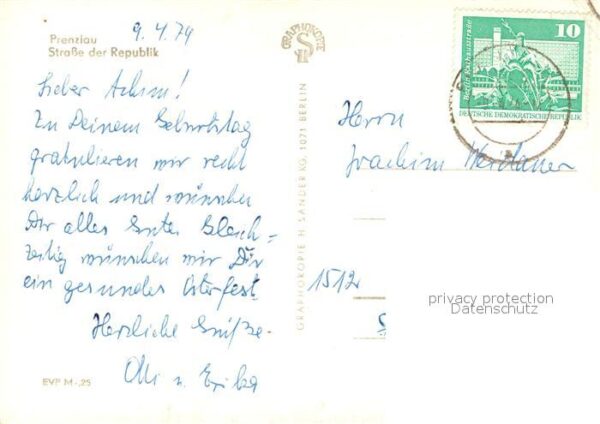 9.4.79
Prenzlau
Straße der Republik
Lieber Achim!
Zu Deinem Geburtstag
gratulieren wir recht
herzlich und wünschen
Dir alles Gute. Gleich=
zeitig wünschen wir Dir
ein gesundes Osterfest.
Herzliche Grüße
Olli u. Erika
EVP M -,25
GRAPHOKOPIE
GRAPHOKOPIE H. SANDER KG, 1071 BERLIN
10
Berlin Rathausstraße
DEUTSCHE DEMOKRATISCHE REPUBLIK
Herrn
Joachim
1512
privacy protection
Datenschutz